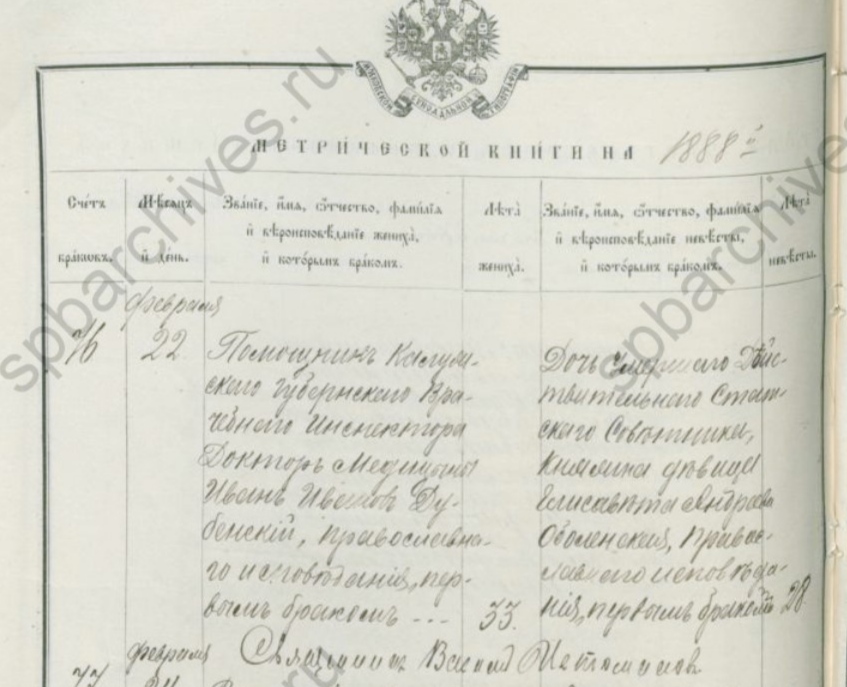 МОСКОВСКОЙ СѴНОДАЛЬНОЙ ТИПОГРАФІИ
МЕТРИЧЕСКОЙ КНИГИ НА 1888 й
Счетъ браковъ.
Мѣсяцъ и день.
Званіе, имя, отчество, фамилія и вѣроисповѣданіе жениха, и которымъ бракомъ.
Лѣта жениха.
Званіе, имя, отчество, фамилія и вѣроисповѣданіе невѣсты, и которымъ бракомъ.
Лѣта невѣсты.
февраля
76
22
Помощникъ Калуж-
скаго Губернскаго Вра-
чебнаго Инспектора
Докторъ Медицины
Иванъ Ивановъ Ду-
бенскій, православна-
го исповѣданія, пер-
вымъ бракомъ ---
33.
Дочь умершаго Дѣйс-
твительнаго Статс-
скаго Совѣтника,
Княжна дѣвица
Елисавѣта Андреева
Оболенская, Правос-
лавнаго исповѣда-
нія, первымъ бракомъ
28
февраля Священникъ
77
spbarchives.ru
spbarchives.ru